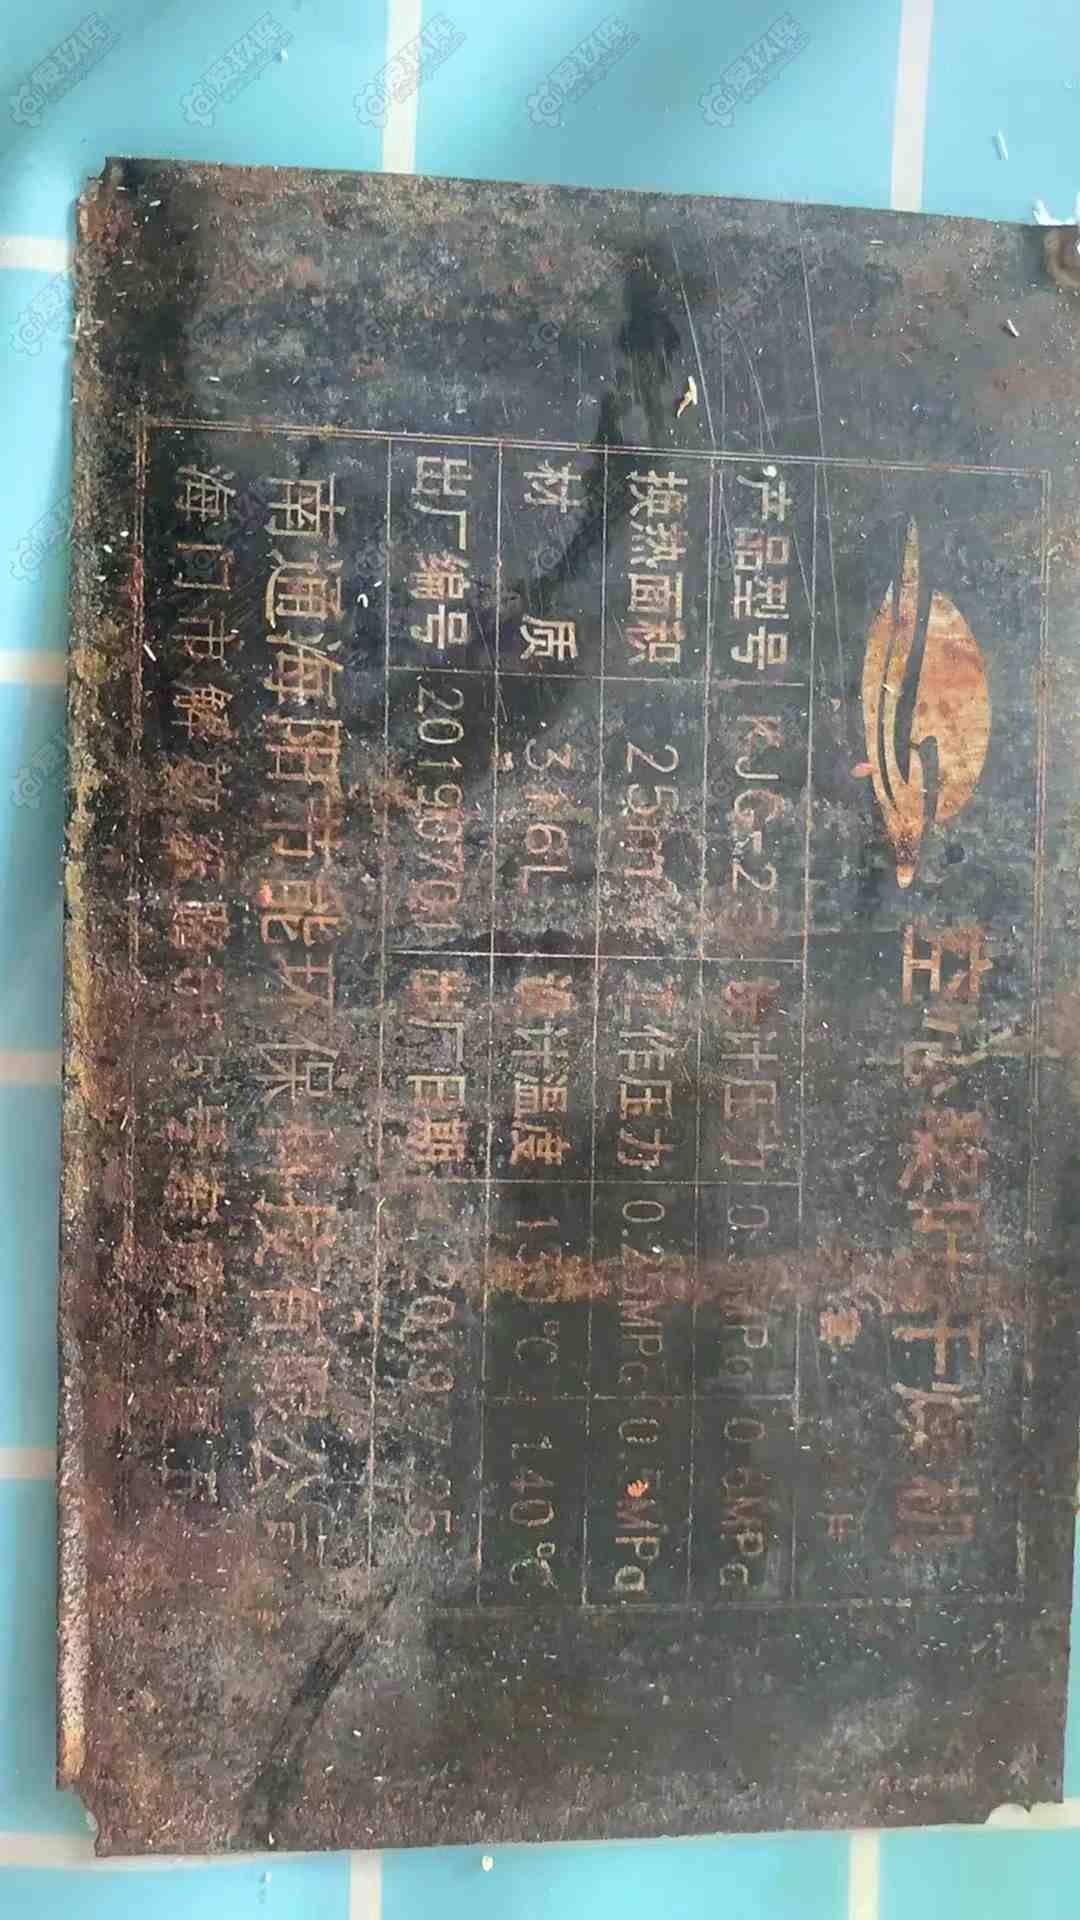 空心桨叶干燥机
壳 片
产品型号 KJG-25 设计压力 0.3MPa 0.6MPa
换热面积 25m² 工作压力 0.25MPa 0.5MPa
材质 316L 设计温度 130℃ 140℃
出厂编号 20190701 出厂日期 2019.7.25
南通海陌节能环保科技有限公司
海门市解放东路